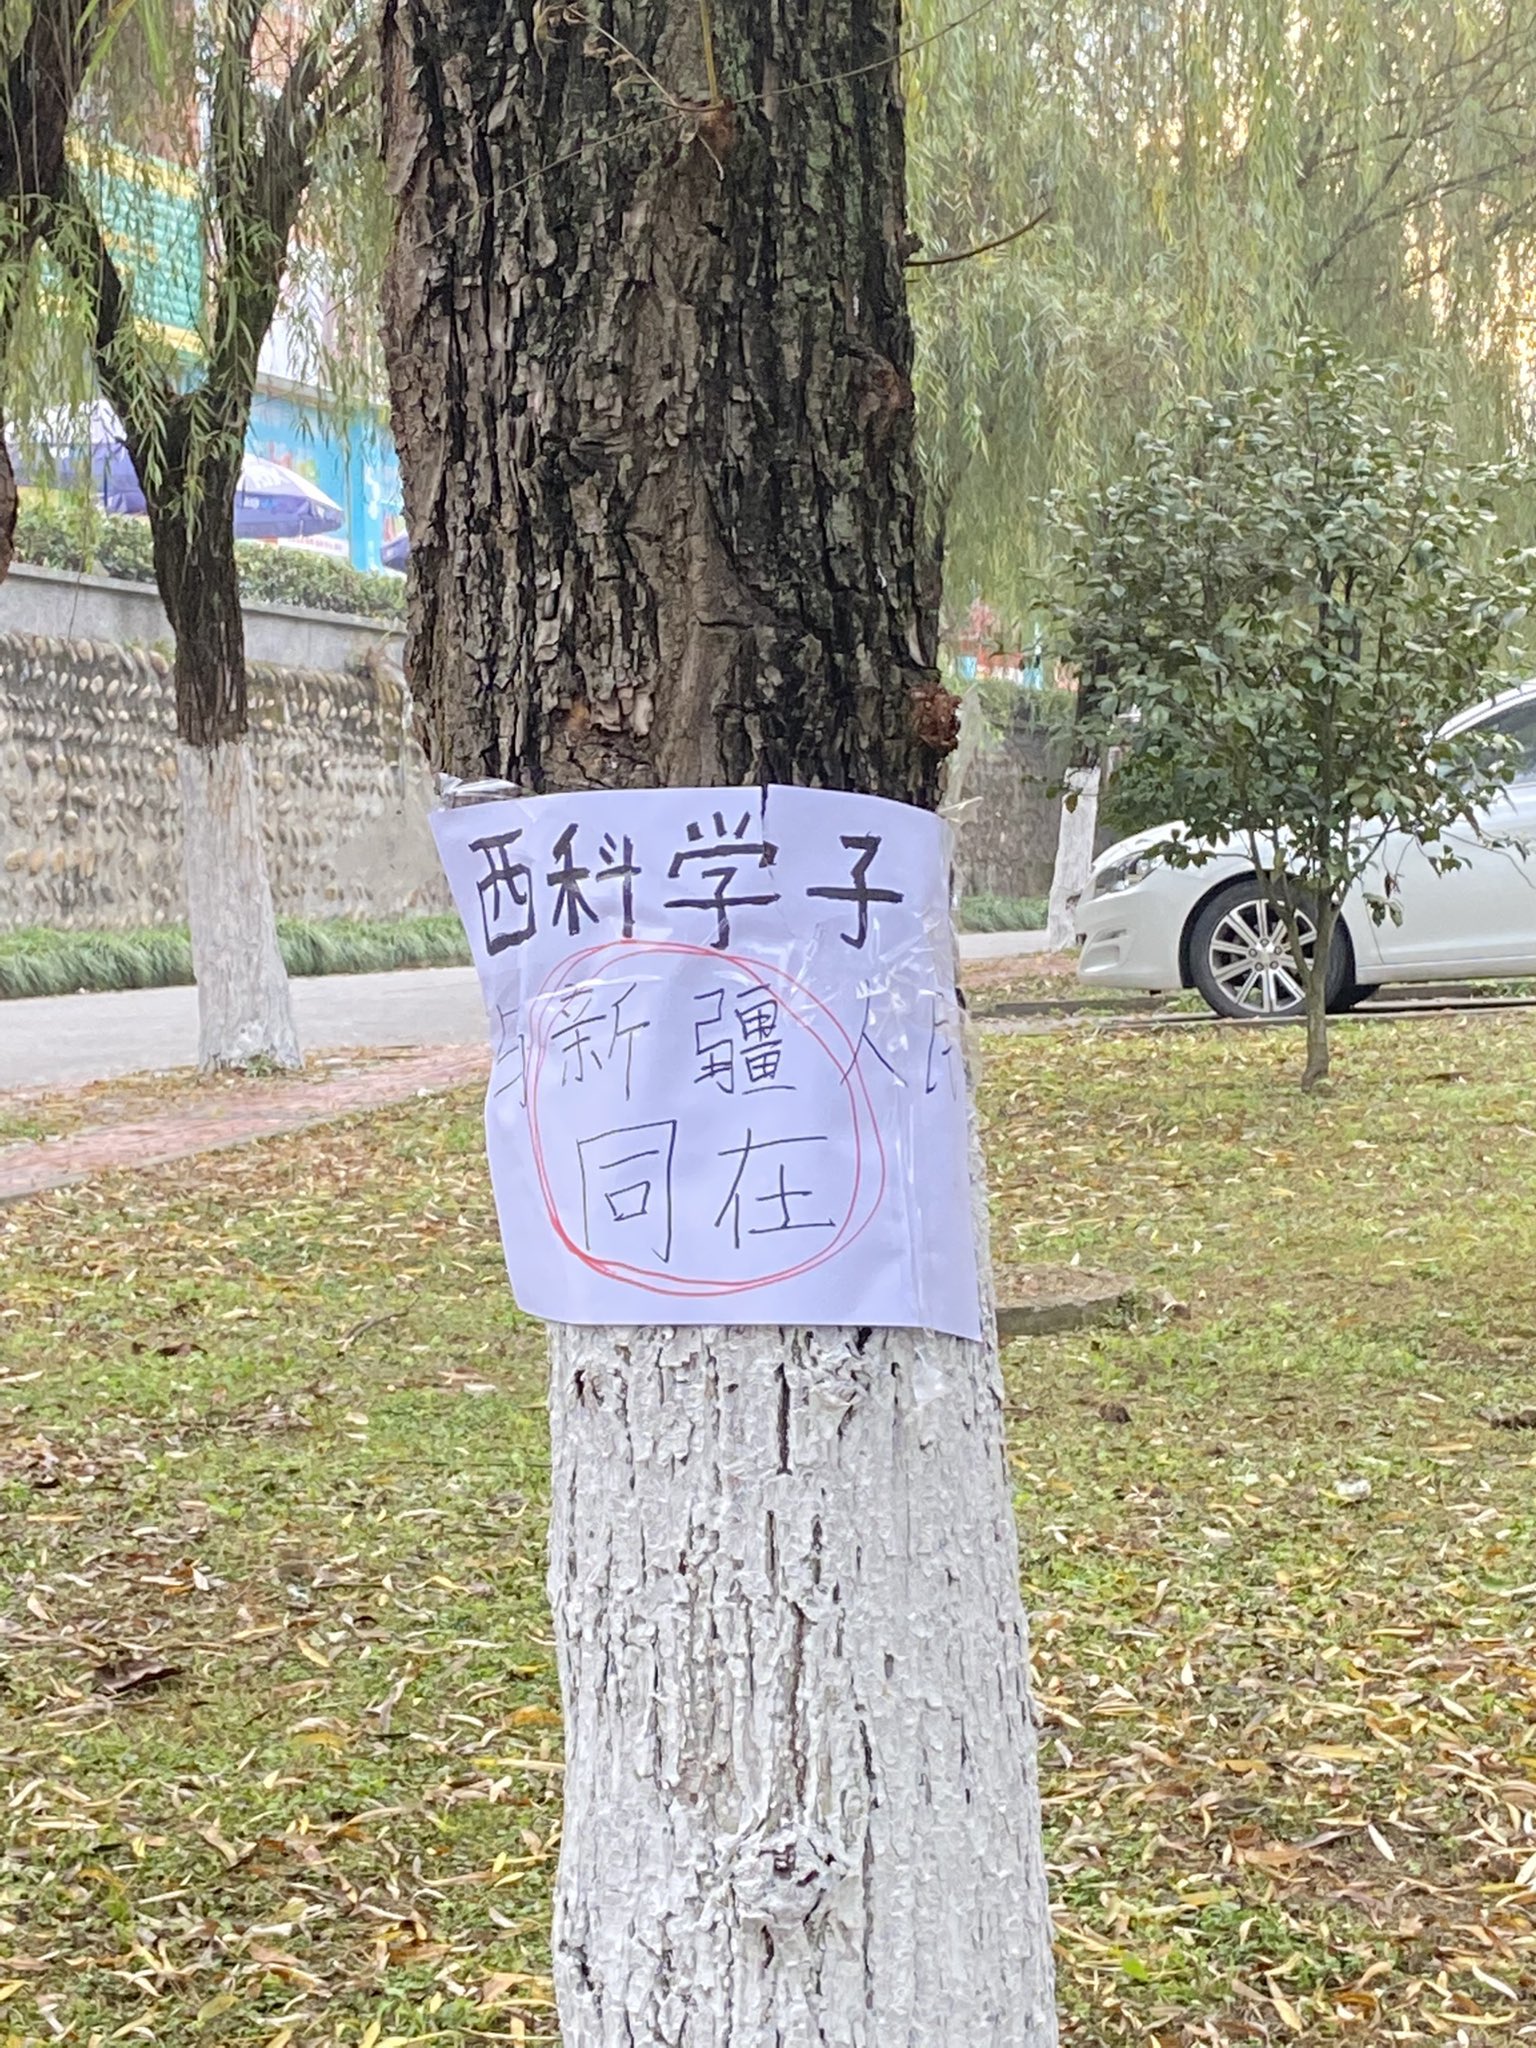 西科学子
与新疆人民
同在